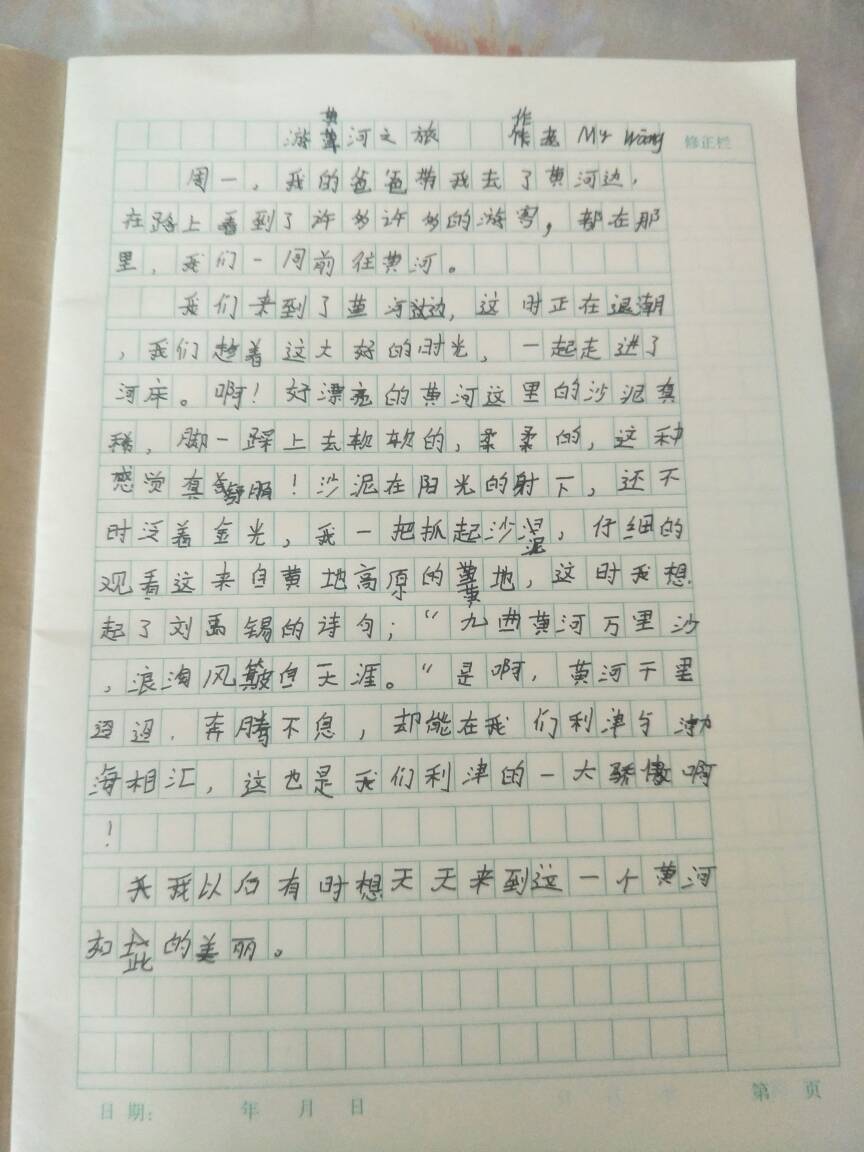 游黄河之旅 作者 Mr Wang
修正栏
周一，我的爸爸带我去了黄河边，
在路上看到了许多许多的游客，都在那
里，我们一同前往黄河。
我们来到了黄河边，这时正在退潮
，我们趁着这大好的时光，一起走进了
河床。啊！好漂亮的黄河这里的沙泥真
稀，脚一踩上去软软的，柔柔的，这种
感觉真舒服！沙泥在阳光的射下，还不
时泛着金光，我一把抓起沙泥，仔细的
观看这来自黄地高原的黄地，这时我想
起了刘禹锡的诗句；“九曲黄河万里沙
，浪淘风簸自天涯。“是啊，黄河千里
迢迢，奔腾不息，却能在我们利津与渤
海相汇，这也是我们利津的一大骄傲啊
！
我以后有时想天天来到这一个黄河
如此的美丽。
日期： 年 月 日
第 页